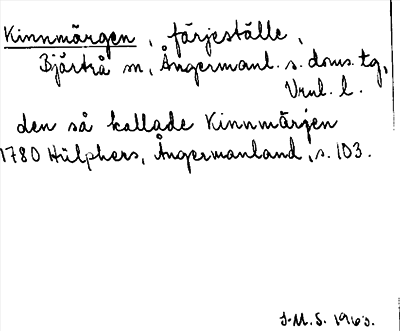 Kinnmärgen, färjeställe,
Bjärtrå sn, Ångermanl. s. doms. tg,
Vnl. l.
den så kallade Kinnmärjen
1780 Hülphers, Ångermanland, s. 103.
I.M.S. 1963.